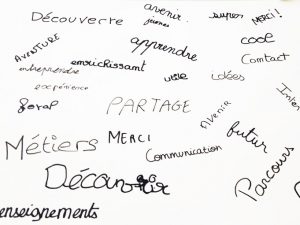 Découverte
avenir
jeunes
super
MERCI!
AVENTURE
apprendre
cool
entreprendre
enrichissant
Contact
expérience
utile
idées
foral
PARTAGE
AVENIR
Métiers
MERCI
futur
Communication
Parcours
enseignements